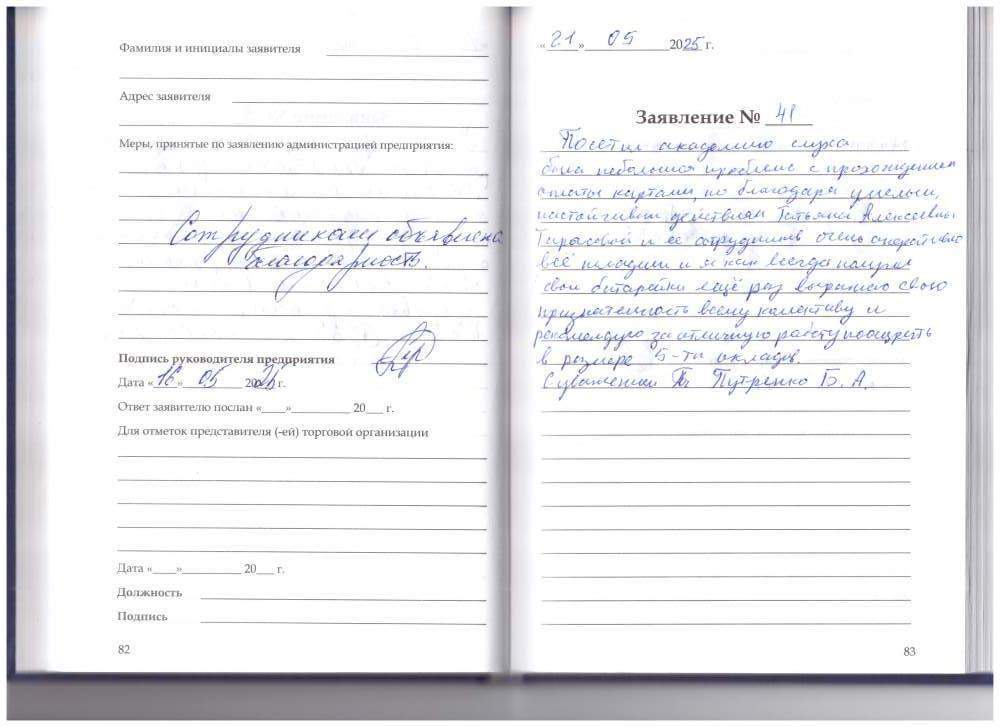 Фамилия и инициалы заявителя
Адрес заявителя
Меры, принятые по заявлению администрацией предприятия:
Сотрудникам объявлена
благодарность.
Подпись руководителя предприятия
Дата «16» 05 2025 г.
Ответ заявителю послан «____»__________ 20___ г.
Для отметок представителя (-ей) торговой организации
Дата «____»__________ 20___ г.
Должность
Подпись
82
«21» 05 2025 г.
Заявление № 41
Посетил академию слуха
была небольшая проблема с прохождением
оплаты картами, но благодаря умелым,
настойчивым действиям Татьяны Алексеевны
Тарасовой и её сотрудников очень оперативно
всё и я как всегда получил
свои батарейки ещё раз выражаю свою
признательность всему колективу и
рекомендую за отличную работу поощрить
в размере 5-ти окладов.
С уважением Путренко Б. А.
83